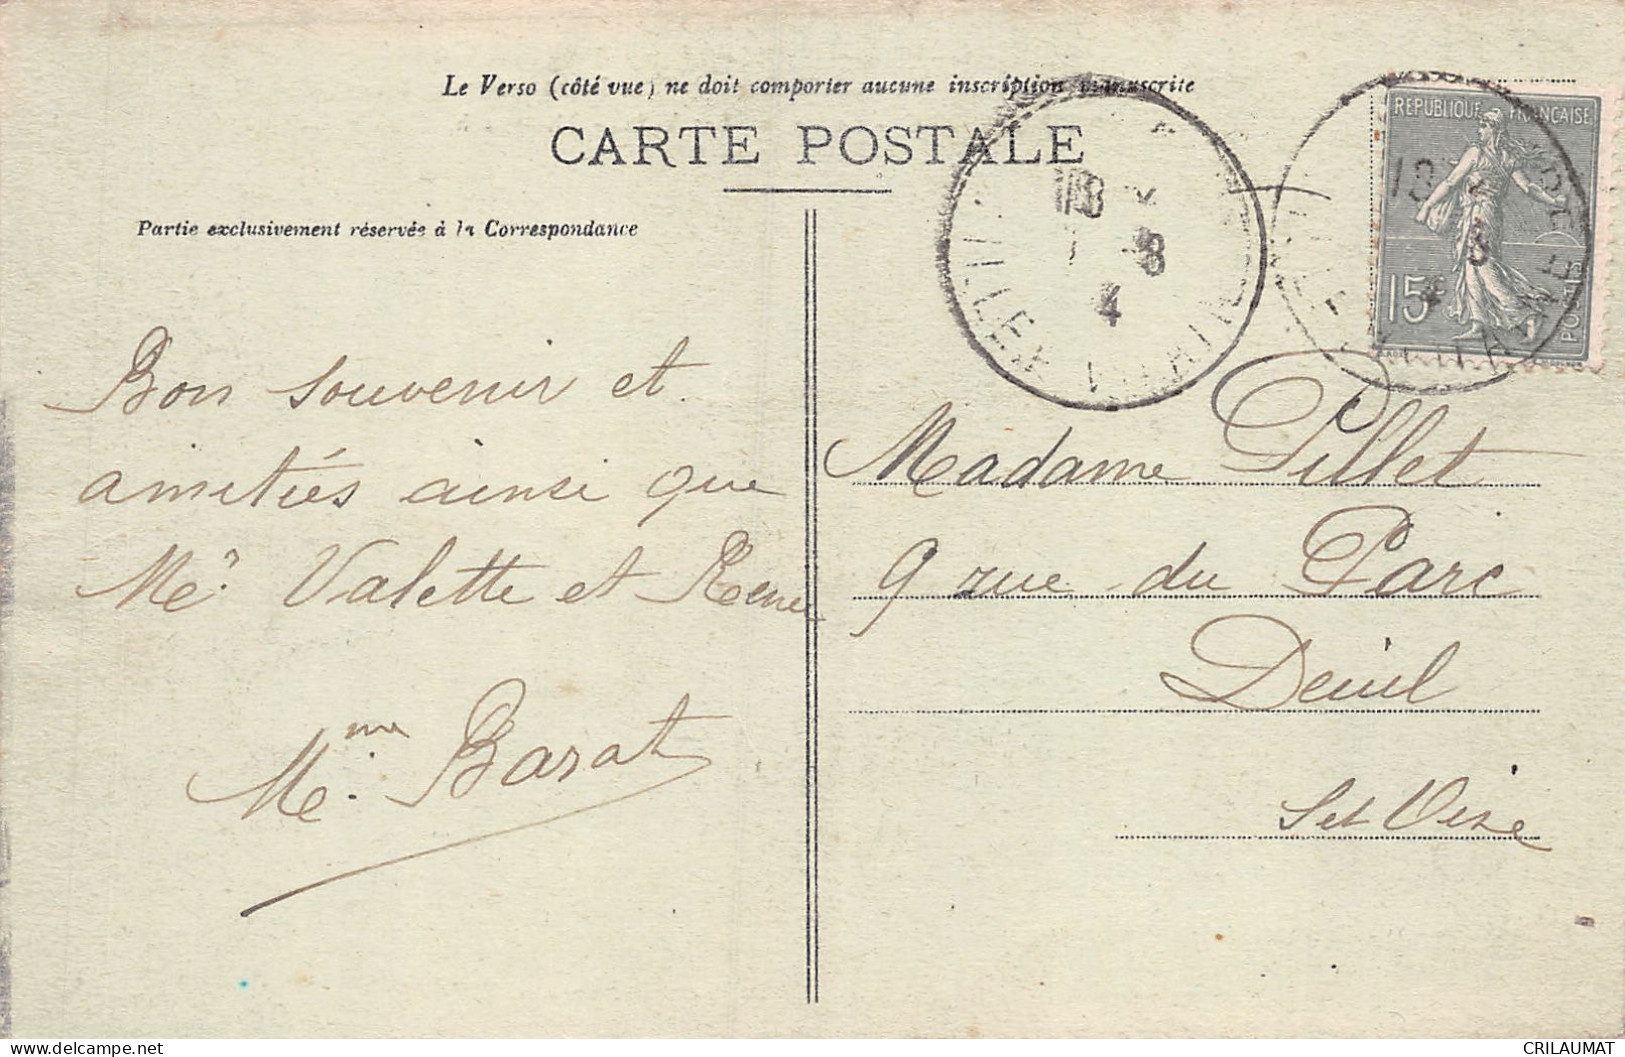 Le Verso (côté vue) ne doit comporter aucune inscription manuscrite
CARTE POSTALE
Partie exclusivement réservée à la Correspondance
REPUBLIQUE FRANÇAISE
15c
POSTES
18
8
4
Bon souvenir et
amitiés ainsi que
Me. Valette et Rene
Mme. Barat
Madame Pillet
9 rue du Parc
Deuil
Set Oise
CRILAUMAT